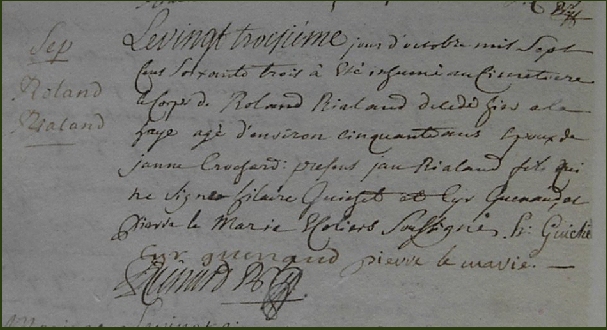 Sep
Roland
Rialand
Le vingt troisiéme jour d'octobre mil Sept
Cens Soixante trois à été inhumé au Cimetiere
le Corps de Roland Rialand décédé hier a la
haye agé d'environ cinquante ans Epoux de
janne Crochard: presens jan Rialand fils qui
ne Signe hilaire Guichet et Cyr Guenaud et
pierre le Marie Ecoliers Soussignés. h: Guiché
Cyr guenaud pierre le marie. —